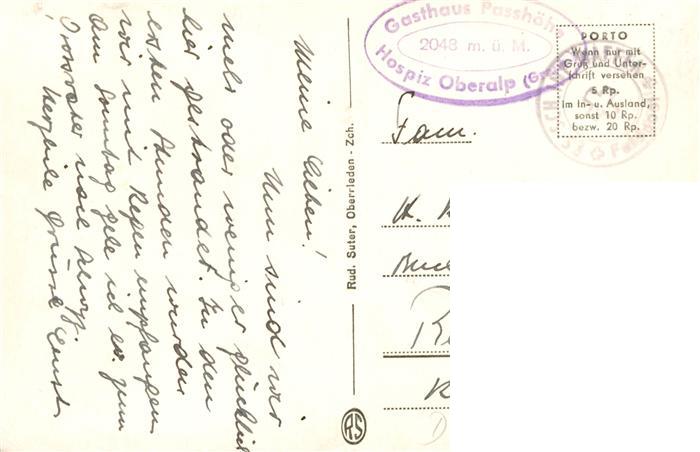 Meine Lieben!
Nun sind wir
mehr oder weniger glücklich
hier gestrandet. In den
ersten Stunden wurden
wir mit Regen empfangen
Am Sonntag gehe ich ev. zum
herzliche Grüsse Ernst
Rud. Suter, Oberrieden - Zch.
RS
Gasthaus Passhöhe
2048 m. ü. M.
Hospiz Oberalp
PORTO
Wenn nur mit
Gruß und Unter-
schrift versehen
5 Rp.
Im In- u. Ausland,
sonst 10 Rp.
bezw. 20 Rp.
Fam.